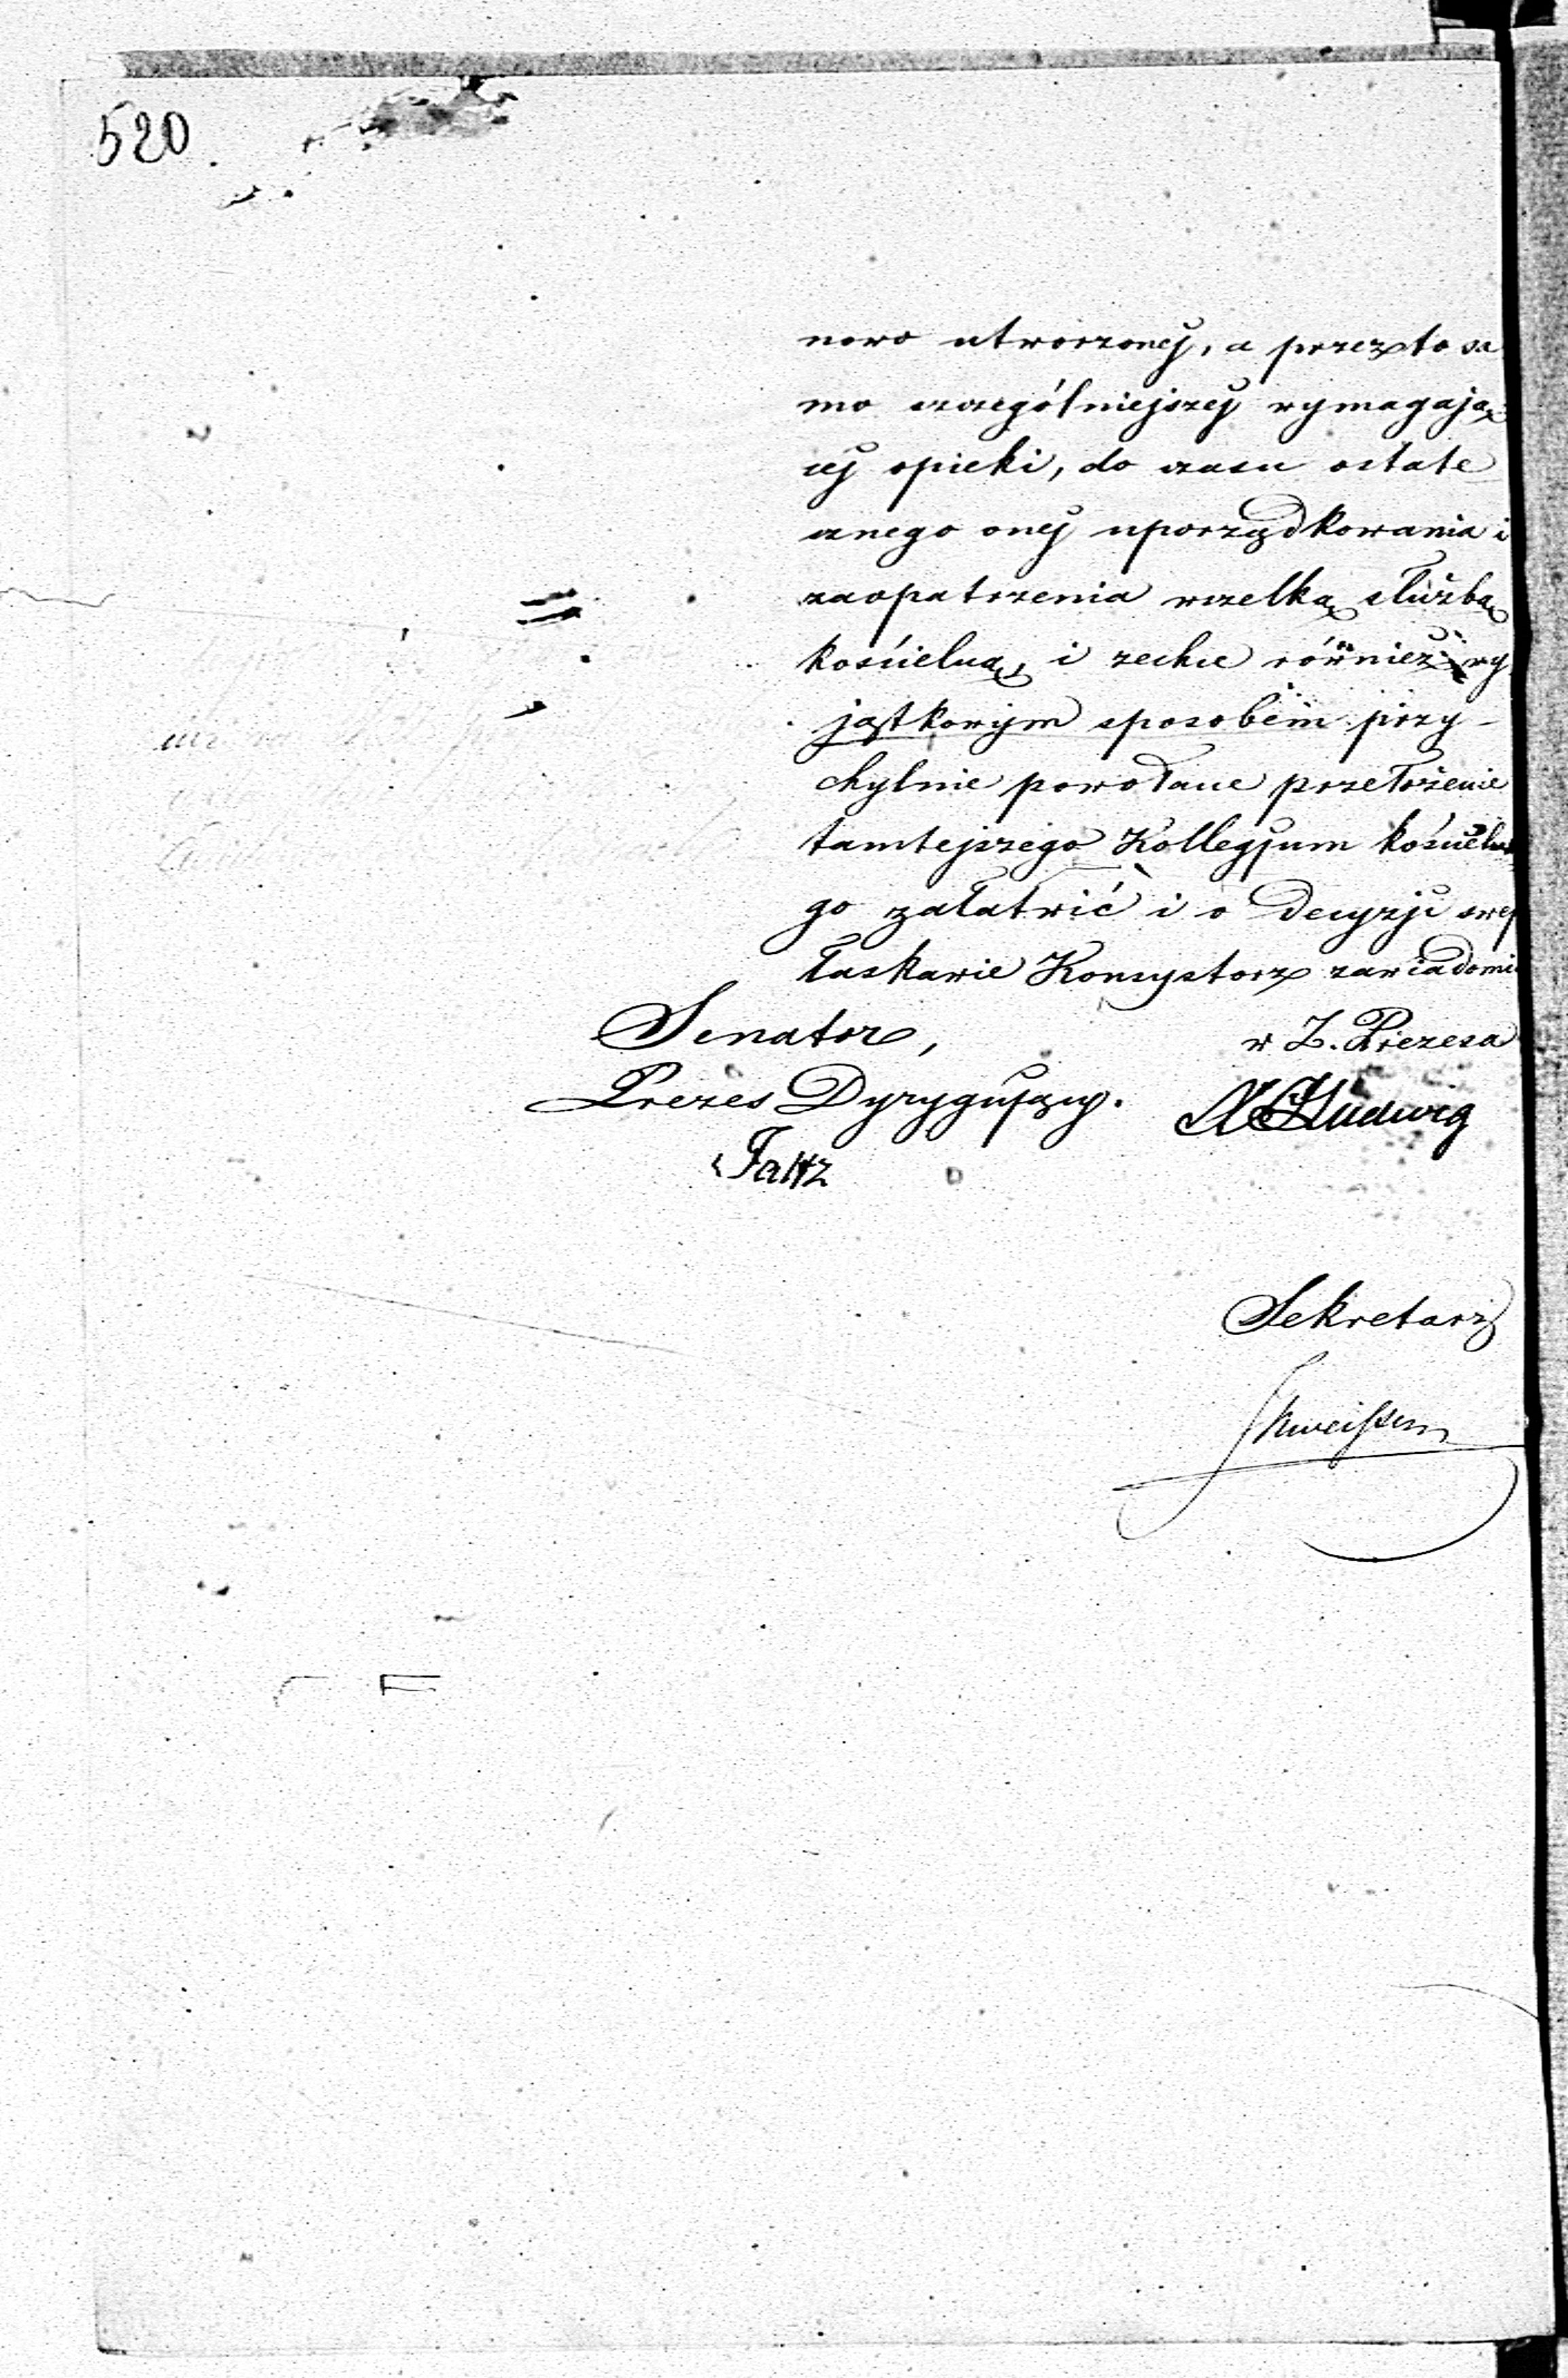 520.
nowo utworzonej, a przezto sa
mo szczególniejszej wymagają
cej opieki, do czasu ostate
cznego onej uporządkowania i
zaopatrzenia wszelką służbą
kościelną, i zechce również wy
jątkowym sposobem przy-
chylnie powołane przełożenie
tamtejszego Kollegjum kościelne
go załatwić i o decyzji swej
łaskawie Konsystorz zawiadomić
Senator, w Z. Prezesa
Prezes Dyrygujący. Ludwig
Sekretarz